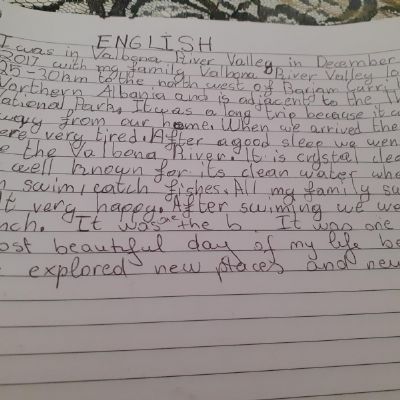 ENGLISH
I was in Valbona River Valley in December
2017 with my family. Valbona River Valley
25-30km to the north west of Bajram Curri
Northern Albania and is adjacent to the
ational Park. It was a long trip because it
way from our home. When we arrived the
ere very tired. After a good sleep we wen
e the Valbona River. It is crystal clea
well known for its clean water whe
n swim, catch fishes. All my family su
lt very happy. After swiming we we
nch. It was one the b. It was one
ost beautiful day of my life be
e explored new places and new